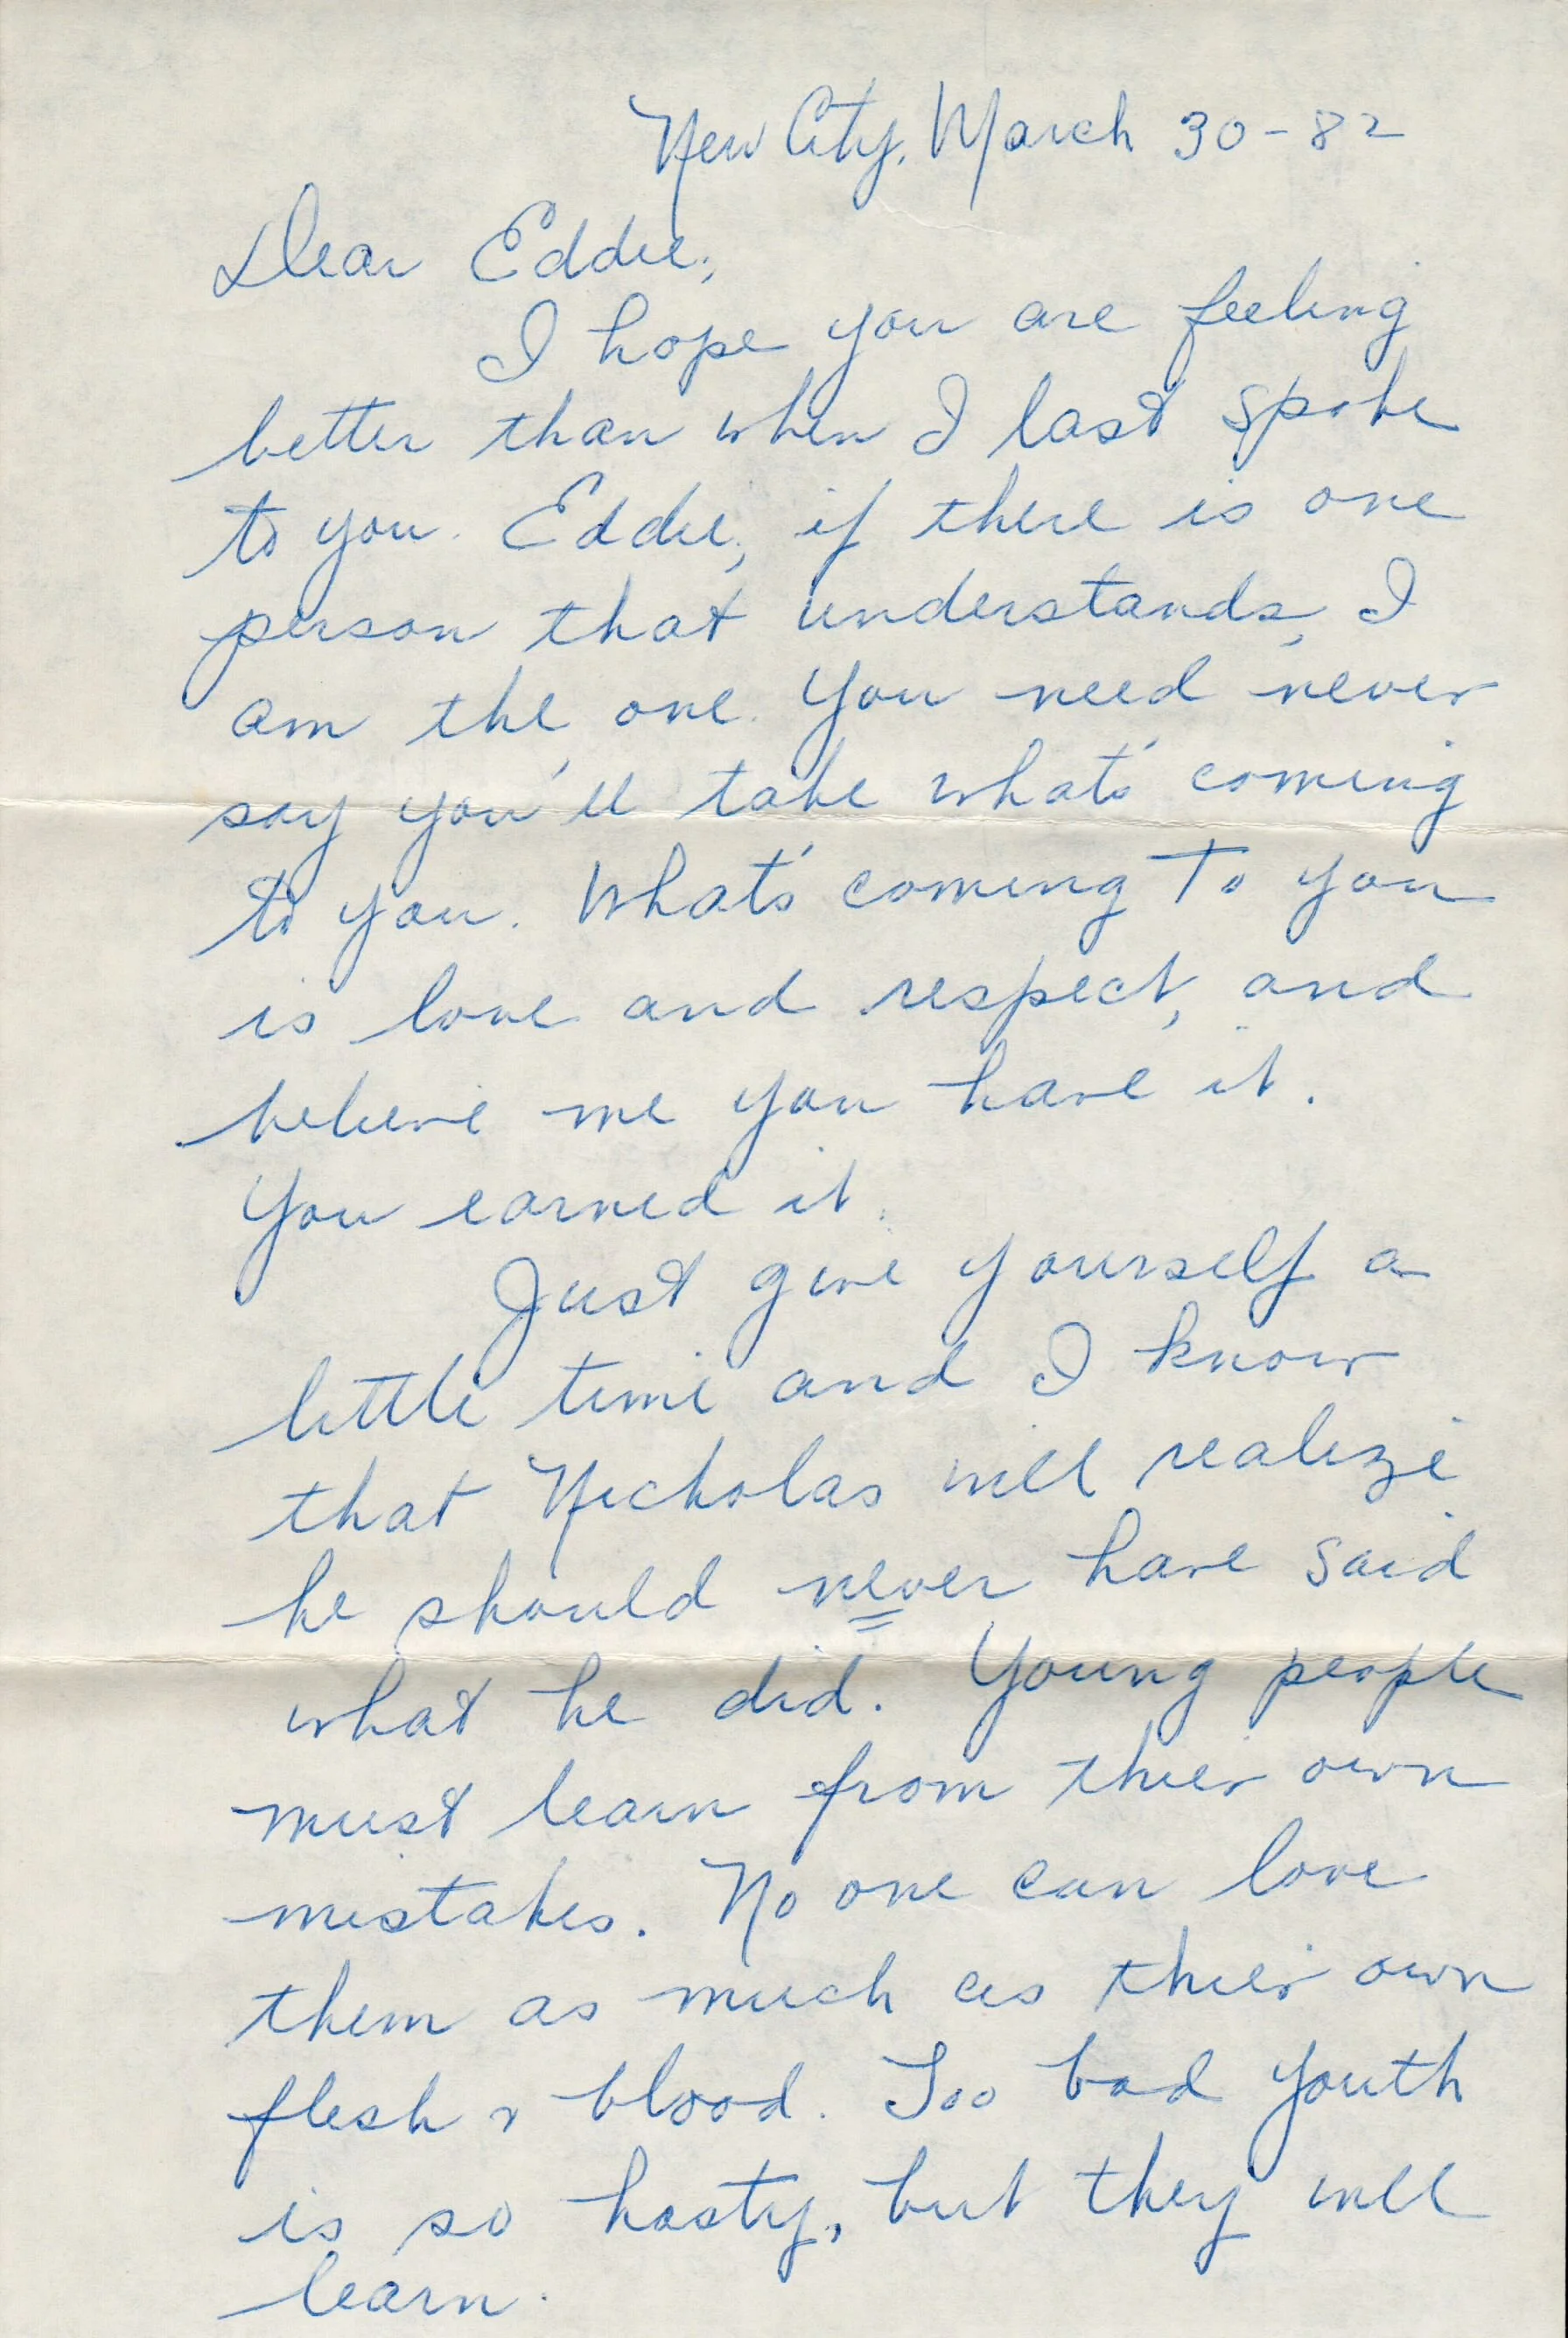 New City, March 30-82
Dear Eddie;
I hope you are feeling
better than when I last spoke
to you. Eddie, if there is one
person that understands, I
am the one. You need never
say you'll take what's coming
to you. What's coming To you
is love and respect, and
believe me you have it.
You earned it.
Just give yourself a
little time and I know
that Nicholas will realize
he should never have said
what he did. Young people
must learn from thier own
mistakes. No one can love
them as much as thier own
flesh & blood. Too bad youth
is so hasty, but they will
learn.